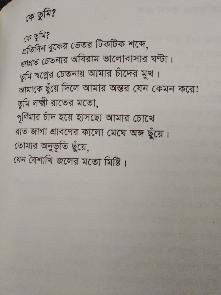 কে তুমি?
কে তুমি?
প্রতিদিন বুকের ভেতর টিকটিক শব্দে,
চেতনার অবিরাম ভালোবাসার ঘণ্টা।
তুমি স্বপ্নের চেতনায় আমার চাঁদের মুখ।
আমাকে ছুঁয়ে দিলে আমার অন্তর যেন কেমন করে!
তুমি লক্ষী রাতের মতো,
পূর্ণিমার চাঁদ হয়ে হাসছো আমার চোখে
রাত জাগা শ্রাবণের কালো মেঘে অঙ্গ ছুঁয়ে।
তোমার অনুভূতি ছুঁয়ে,
যেন বৈশাখি জলের মতো মিষ্টি।